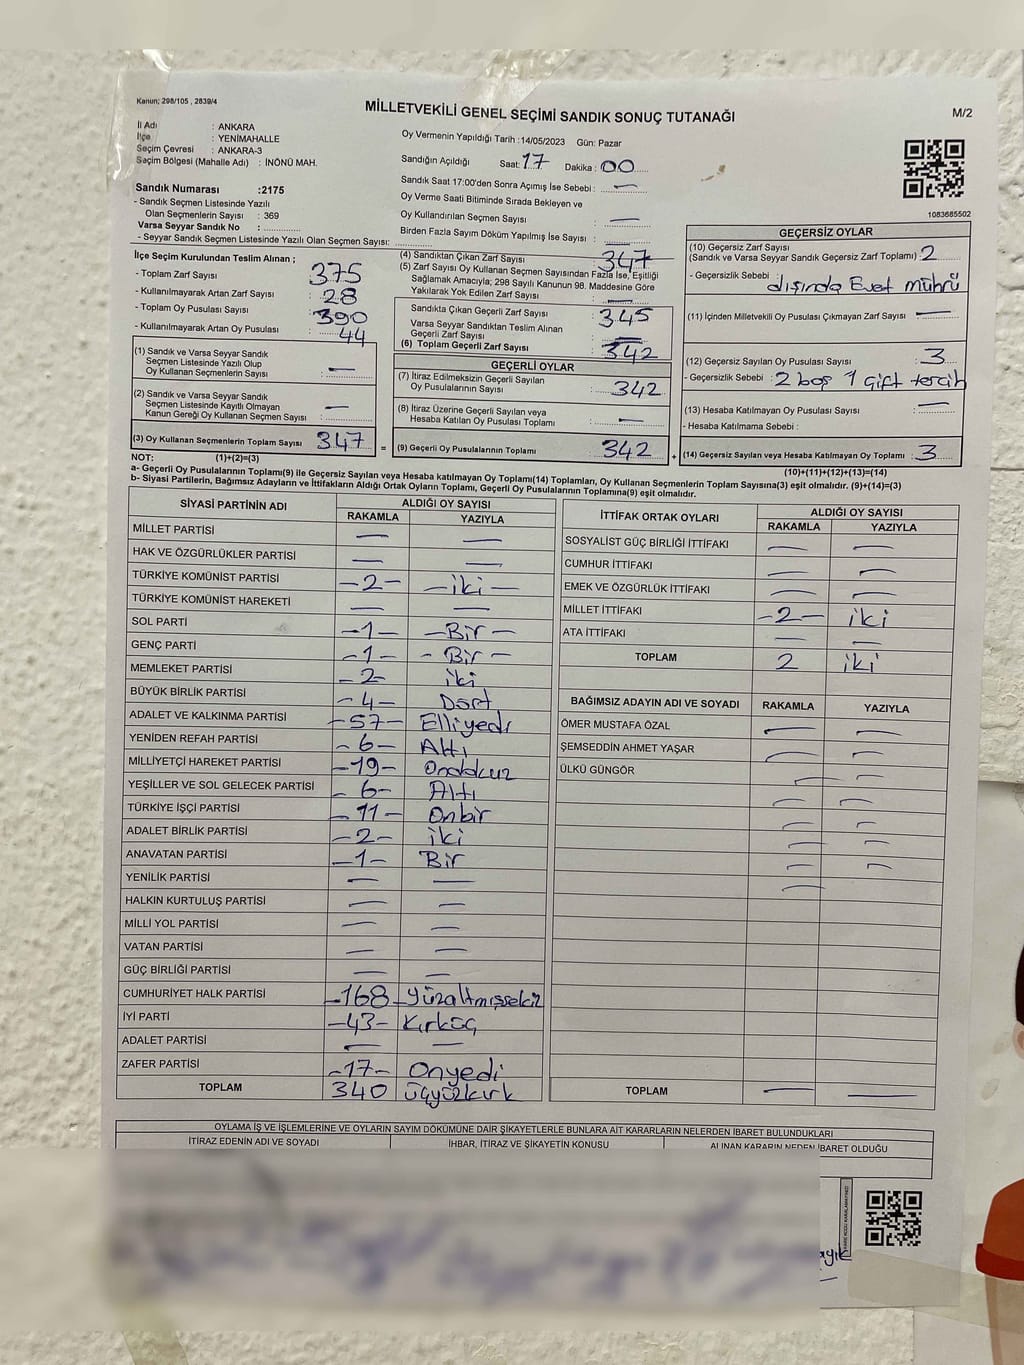 Kanun; 298/105 , 2839/4
MİLLETVEKİLİ GENEL SEÇİMİ SANDIK SONUÇ TUTANAĞI
M/2
İl Adı : ANKARA
İlçe : YENİMAHALLE
Seçim Çevresi : ANKARA-3
Seçim Bölgesi (Mahalle Adı) : İNÖNÜ MAH.
Sandık Numarası :2175
- Sandık Seçmen Listesinde Yazılı
Olan Seçmenlerin Sayısı : 369
Varsa Seyyar Sandık No :
- Seyyar Sandık Seçmen Listesinde Yazılı Olan Seçmen Sayısı:
Oy Vermenin Yapıldığı Tarih :14/05/2023 Gün: Pazar
Sandığın Açıldığı Saat: 17 Dakika : 00
Sandık Saat 17:00'den Sonra Açımış İse Sebebi : —
Oy Verme Saati Bitiminde Sırada Bekleyen ve
Oy Kullandırılan Seçmen Sayısı : —
Birden Fazla Sayım Döküm Yapılmış İse Sayısı : —
1083685502
İlçe Seçim Kurulundan Teslim Alınan ;
- Toplam Zarf Sayısı : 375
- Kullanılmayarak Artan Zarf Sayısı : 28
- Toplam Oy Pusulası Sayısı : 390
- Kullanılmayarak Artan Oy Pusulası : 44
(1) Sandık ve Varsa Seyyar Sandık
Seçmen Listesinde Yazılı Olup
Oy Kullanan Seçmenlerin Sayısı : —
(2) Sandık ve Varsa Seyyar Sandık
Seçmen Listesinde Kayıtlı Olmayan
Kanun Gereği Oy Kullanan Seçmen Sayısı : —
(3) Oy Kullanan Seçmenlerin Toplam Sayısı : 347 =
(4) Sandıktan Çıkan Zarf Sayısı : 347
(5) Zarf Sayısı Oy Kullanan Seçmen Sayısından Fazla İse, Eşitliği
Sağlamak Amacıyla; 298 Sayılı Kanunun 98. Maddesine Göre
Yakılarak Yok Edilen Zarf Sayısı : —
Sandıkta Çıkan Geçerli Zarf Sayısı : 345
Varsa Seyyar Sandıktan Teslim Alınan
Geçerli Zarf Sayısı : —
(6) Toplam Geçerli Zarf Sayısı : 342
GEÇERLİ OYLAR
(7) İtiraz Edilmeksizin Geçerli Sayılan
Oy Pusulalarının Sayısı : 342
(8) İtiraz Üzerine Geçerli Sayılan veya
Hesaba Katılan Oy Pusulası Toplamı : —
(9) Geçerli Oy Pusulalarının Toplamı : 342 +
GEÇERSİZ OYLAR
(10) Geçersiz Zarf Sayısı
(Sandık ve Varsa Seyyar Sandık Geçersiz Zarf Toplamı) : 2
- Geçersizlik Sebebi : dışında Evet mührü
(11) İçinden Milletvekili Oy Pusulası Çıkmayan Zarf Sayısı : —
(12) Geçersiz Sayılan Oy Pusulası Sayısı : 3
- Geçersizlik Sebebi : 2 boş 1 Çift tercih
(13) Hesaba Katılmayan Oy Pusulası Sayısı : —
- Hesaba Katılmama Sebebi :
(14) Geçersiz Sayılan veya Hesaba Katılmayan Oy Toplamı : 3
NOT: (1)+(2)=(3)
(10)+(11)+(12)+(13)=(14)
a- Geçerli Oy Pusulalarının Toplamı(9) ile Geçersiz Sayılan veya Hesaba katılmayan Oy Toplamı(14) Toplamları, Oy Kullanan Seçmenlerin Toplam Sayısına(3) eşit olmalıdır. (9)+(14)=(3)
b- Siyasi Partilerin, Bağımsız Adayların ve İttifakların Aldığı Ortak Oyların Toplamı, Geçerli Oy Pusulalarının Toplamına(9) eşit olmalıdır.
SİYASİ PARTİNİN ADI ALDIĞI OY SAYISI
RAKAMLA YAZIYLA
MİLLET PARTİSİ — —
HAK VE ÖZGÜRLÜKLER PARTİSİ — —
TÜRKİYE KOMÜNİST PARTİSİ –2– –iki–
TÜRKİYE KOMÜNİST HAREKETİ — —
SOL PARTİ –1– –Bir–
GENÇ PARTİ –1– –Bir–
MEMLEKET PARTİSİ –2– iki
BÜYÜK BİRLİK PARTİSİ –4– Dört
ADALET VE KALKINMA PARTİSİ –57– Elliyedi
YENİDEN REFAH PARTİSİ –6– Altı
MİLLİYETÇİ HAREKET PARTİSİ –19– Ondokuz
YEŞİLLER VE SOL GELECEK PARTİSİ –6– Altı
TÜRKİYE İŞÇİ PARTİSİ –11– Onbir
ADALET BİRLİK PARTİSİ –2– iki
ANAVATAN PARTİSİ –1– Bir
YENİLİK PARTİSİ — —
HALKIN KURTULUŞ PARTİSİ — —
MİLLİ YOL PARTİSİ — —
VATAN PARTİSİ — —
GÜÇ BİRLİĞİ PARTİSİ — —
CUMHURİYET HALK PARTİSİ –168– Yüzaltmışsekiz
İYİ PARTİ –43– Kırküç
ADALET PARTİSİ — —
ZAFER PARTİSİ –17– Onyedi
TOPLAM 340 Üçyüzkırk
İTTİFAK ORTAK OYLARI ALDIĞI OY SAYISI
RAKAMLA YAZIYLA
SOSYALİST GÜÇ BİRLİĞİ İTTİFAKI — —
CUMHUR İTTİFAKI — —
EMEK VE ÖZGÜRLÜK İTTİFAKI — —
MİLLET İTTİFAKI –2– iki
ATA İTTİFAKI — —
TOPLAM 2 iki
BAĞIMSIZ ADAYIN ADI VE SOYADI RAKAMLA YAZIYLA
ÖMER MUSTAFA ÖZAL — —
ŞEMSEDDİN AHMET YAŞAR — —
ÜLKÜ GÜNGÖR — —
TOPLAM — —
OYLAMA İŞ VE İŞLEMLERİNE VE OYLARIN SAYIM DÖKÜMÜNE DAİR ŞİKAYETLERLE BUNLARA AİT KARARLARIN NELERDEN İBARET BULUNDUKLARI
İTİRAZ EDENİN ADI VE SOYADI İHBAR, İTİRAZ VE ŞİKAYETİN KONUSU ALINAN KARARIN NEDEN İBARET OLDUĞU